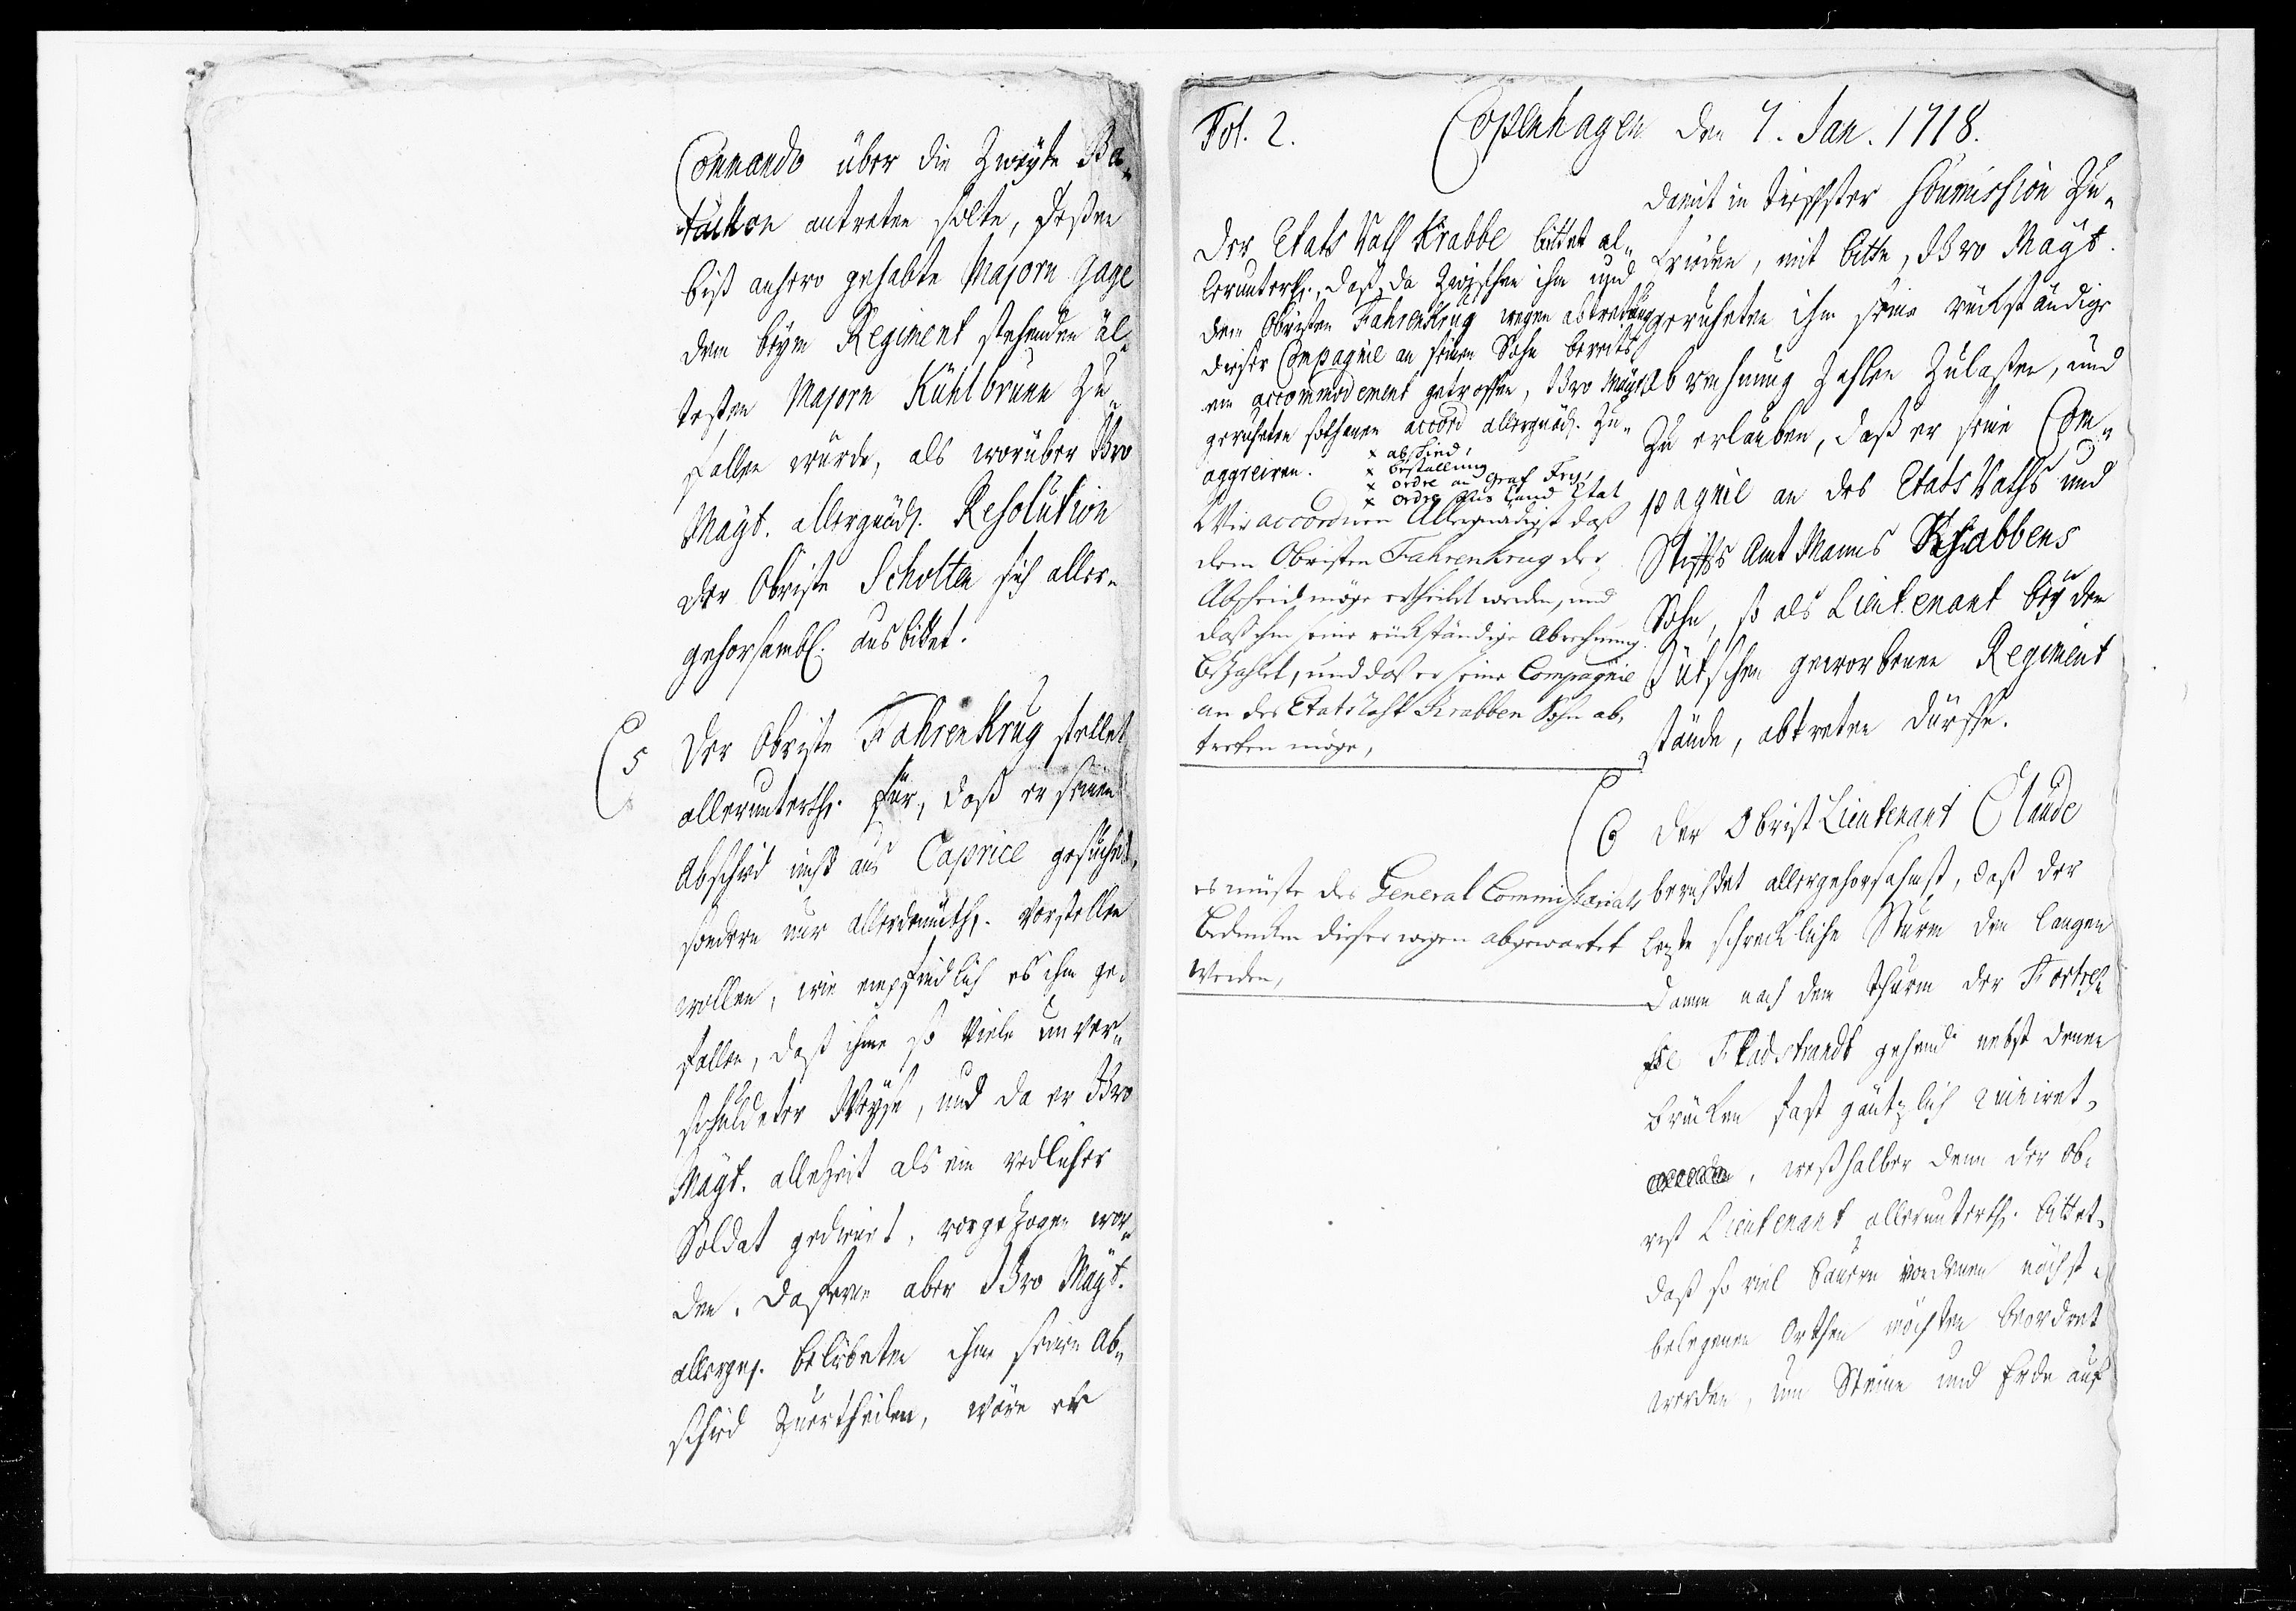 Commando über die Zweyte Ba„
taillon antreten solte, dessen
biß anhero gehabte Majorn Gage
dem beym Regiment stehenden äl„
testen Majorn Kühlbrunn zu„
fallen würde, als worüber Ihro
Mayt. allergnäd. Resolution
der Obriste Scholten sich aller„
gehorsambl. ausbittet.
5 Der Obriste Fahrenkrug stellet
allerunterth. für, daß er seinen
Abschied nicht aus Caprice gesuchet,
sondern nur allerdemüth. vorstellen
wollen, wie empfindlich es ihm ge„
fallen, daß ihme so viele unver„
schuldeter Weyse, und da er Ihro
Mayt. allezeit als ein redlicher
Soldat gedienet, vorgezogen wor„
den. Daferne aber Ihro Mayt.
allergn. beliebeten ihme seinen Ab„
schied zuertheilen, wäre er
Fol. 2. Copenhagen den 7. Jan. 1718.
Der Etats Rath Krabbe bittet al„
lerunterth., daß, da zwischen ihm und
dem Obristen Fahrenkrug wegen abtretung
dieser Compagnie an seinen Sohn bereits
ein accommodement getroffen, Ihro Mayt.
geruheten solchanen accord allergnäd. zu„
aggreiren.
x abschied,
x bestallung
x ordre an Graf Frys,
x ordre Land Etat
Wir accordiren Allergnädigst daß
dem Obristen Fahrenkrug der
Abscheid möge ertheilet werden, und
daß ihm seine rückständige Abrechnung
bezahlet, und daß er seine Compagnie
an des Etats Raht Krabben Sohn ab„
tretten möge,
damit in tiefster Soumission zu„
frieden, mit bitte, Ihro Mayt.
geruheten ihm seine rückständige
Abrechnung zahlen zulassen, und
zu erlauben, daß er seine Com„
pagnie an des Etats Raths und
Stiffts Amt Manns Krabbens
Sohn, so als Lieutenant bey dem
Jütschen geworbenen Regiment
stände, abtreten dürffe.
es müste des General Commissariats
Bedencken dieserwegen abgewartet
werden,
6 Der Obrist Lieutenant Claude
berichtet allergehorsahmst, daß der
lezte schreckliche Sturm den langen
Damm nach dem Thurm der Fortres„
se Fladstrandt gehend nebst denen
Brücken fast gäntzlich ruiniret,
, weßhalber denn der Ob„
rist Lieutenant allerunterth. bittet,
daß so viel Bauern von denen nächst„
belegenen Orthen möchten beordret
werden, um Steine und Erde auf